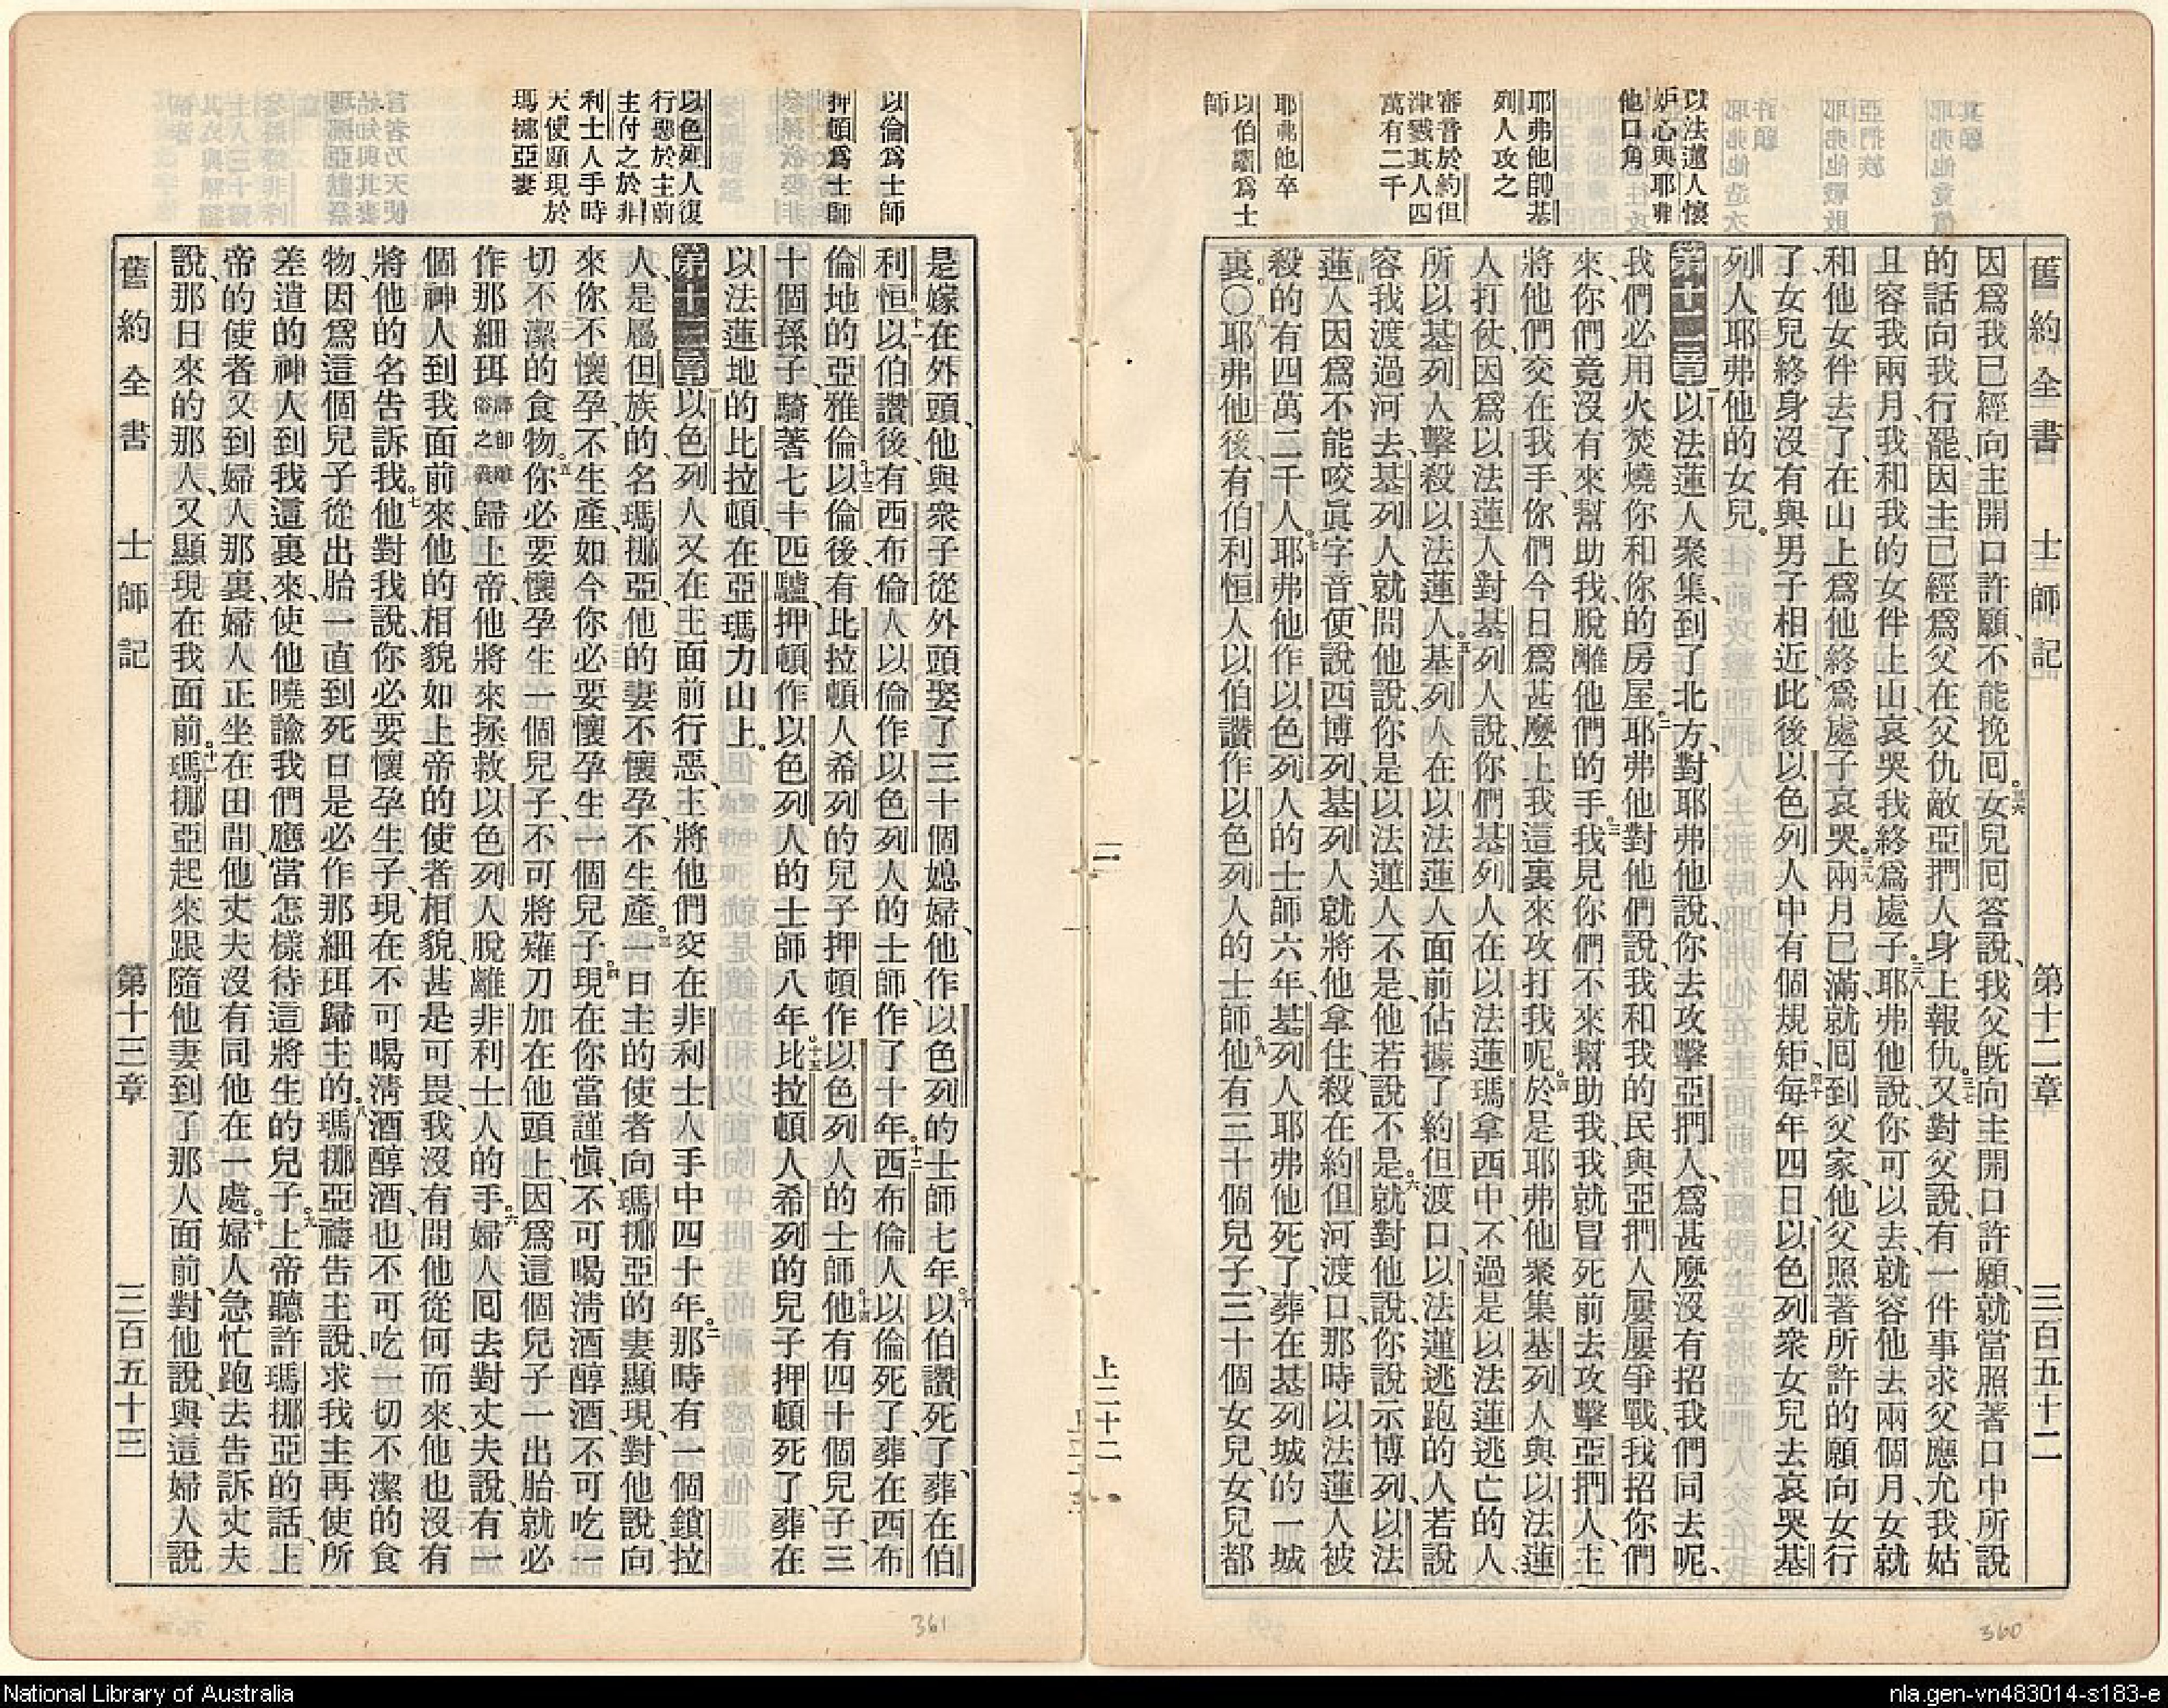 舊約全書 士師記 第十二章 三百五十二
以法蓮人懷
妒心與耶弗
他口角
耶弗他帥基
列人攻之
審音於約但
津戮其人四
萬有二千
耶弗他卒
以伯讚爲士
師
因爲我已經向主開口許願、不能挽回。三六女兒回答說、我父既向主開口許願、就當照著口中所說
的話向我行罷、因主已經爲父在父仇敵亞捫人身上報仇。三七又對父說、有一件事求父應允我、姑
且容我兩月、我和我的女伴上山、哀哭我終爲處子。三八耶弗他說、你可以去、就容他去兩個月、女就
和他女伴去了、在山上爲他終爲處子哀哭。三九兩月已滿、就回到父家、他父照著所許的願向女行
了、女兒終身沒有與男子相近、此後以色列人中有個規矩、四十每年四日、以色列衆女兒去哀哭基
列人耶弗他的女兒。
第十二章 一以法蓮人聚集、到了北方、對耶弗他說、你去攻擊亞捫人、爲甚麼沒有招我們同去呢、
我們必用火焚燒你和你的房屋。二耶弗他對他們說、我和我的民與亞捫人屢屢爭戰、我招你們
來、你們竟沒有來幫助我、脫離他們的手。三我見你們不來幫助我、我就冒死前去攻擊亞捫人、主
將他們交在我手、你們今日爲甚麼上我這裏來攻打我呢。四於是耶弗他聚集基列人與以法蓮
人打仗、因爲以法蓮人對基列人說、你們基列人在以法蓮瑪拿西中、不過是以法蓮逃亡的人、
所以基列人擊殺以法蓮人。五基列人在以法蓮人面前佔據了約但渡口、以法蓮逃跑的人若說
容我渡過河去、基列人就問他說、你是以法蓮人不是、他若說不是。六就對他說、你說示博列、以法
蓮人因爲不能咬眞字音、便說西博列、基列人就將他拿住、殺在約但河渡口、那時以法蓮人被
殺的有四萬二千人。七耶弗他作以色列人的士師六年、基列人耶弗他死了、葬在基列城的一城
裏。〇八耶弗他後、有伯利恒人以伯讚作以色列人的士師。九他有三十個兒子、三十個女兒、女兒都
上二十二
舊約全書 士師記 第十三章 三百五十三
以倫爲士師
押頓爲士師
以色列人復
行惡於主前
主付之於非
利士人手時
天使顯現於
瑪挪亞妻
是嫁在外頭、他與衆子從外頭娶了三十個媳婦、他作以色列的士師七年。十以伯讚死了、葬在伯
利恒。十一以伯讚後、有西布倫人以倫作以色列人的士師、作了十年。十二西布倫人以倫死了、葬在西布
倫地的亞雅倫。十三以倫後、有比拉頓人希列的兒子押頓作以色列人的士師。十四他有四十個兒子、三
十個孫子、騎著七十匹驢、押頓作以色列人的士師八年。十五比拉頓人希列的兒子押頓死了、葬在
以法蓮地的比拉頓、在亞瑪力山上。
第十三章 一以色列人又在主面前行惡、主將他們交在非利士人手中四十年。二那時有一個鎖拉
人、是屬但族的、名瑪挪亞、他的妻不懷孕、不生產。三一日主的使者向瑪挪亞的妻顯現、對他說、向
來你不懷孕、不生產、如今你必要懷孕生一個兒子。四現在你當謹愼、不可喝淸酒醇酒、不可吃一
切不潔的食物。五你必要懷孕生一個兒子、不可將薙刀加在他頭上、因爲這個兒子一出胎就必
作那細珥譯卽離俗之義歸上帝、他將來拯救以色列人脫離非利士人的手。六婦人回去對丈夫說、有一
個神人到我面前來、他的相貌如上帝的使者相貌、甚是可畏、我沒有問他從何而來、他也沒有
將他的名告訴我。七他對我說、你必要懷孕生子、現在不可喝淸酒醇酒、也不可吃一切不潔的食
物、因爲這個兒子從出胎一直到死日、是必作那細珥歸主的。八瑪挪亞禱告主說、求我主再使所
差遣的神人到我這裏來、使他曉諭我們應當怎樣待這將生的兒子。九上帝聽許瑪挪亞的話、上
帝的使者又到婦人那裏、婦人正坐在田間、他丈夫沒有同他在一處。十婦人急忙跑去告訴丈夫
說、那日來的那人、又顯現在我面前。十一瑪挪亞起來跟隨他妻到了那人面前、對他說、與這婦人說
361
360
National Library of Australia
nla.gen-vn483014-s183-e